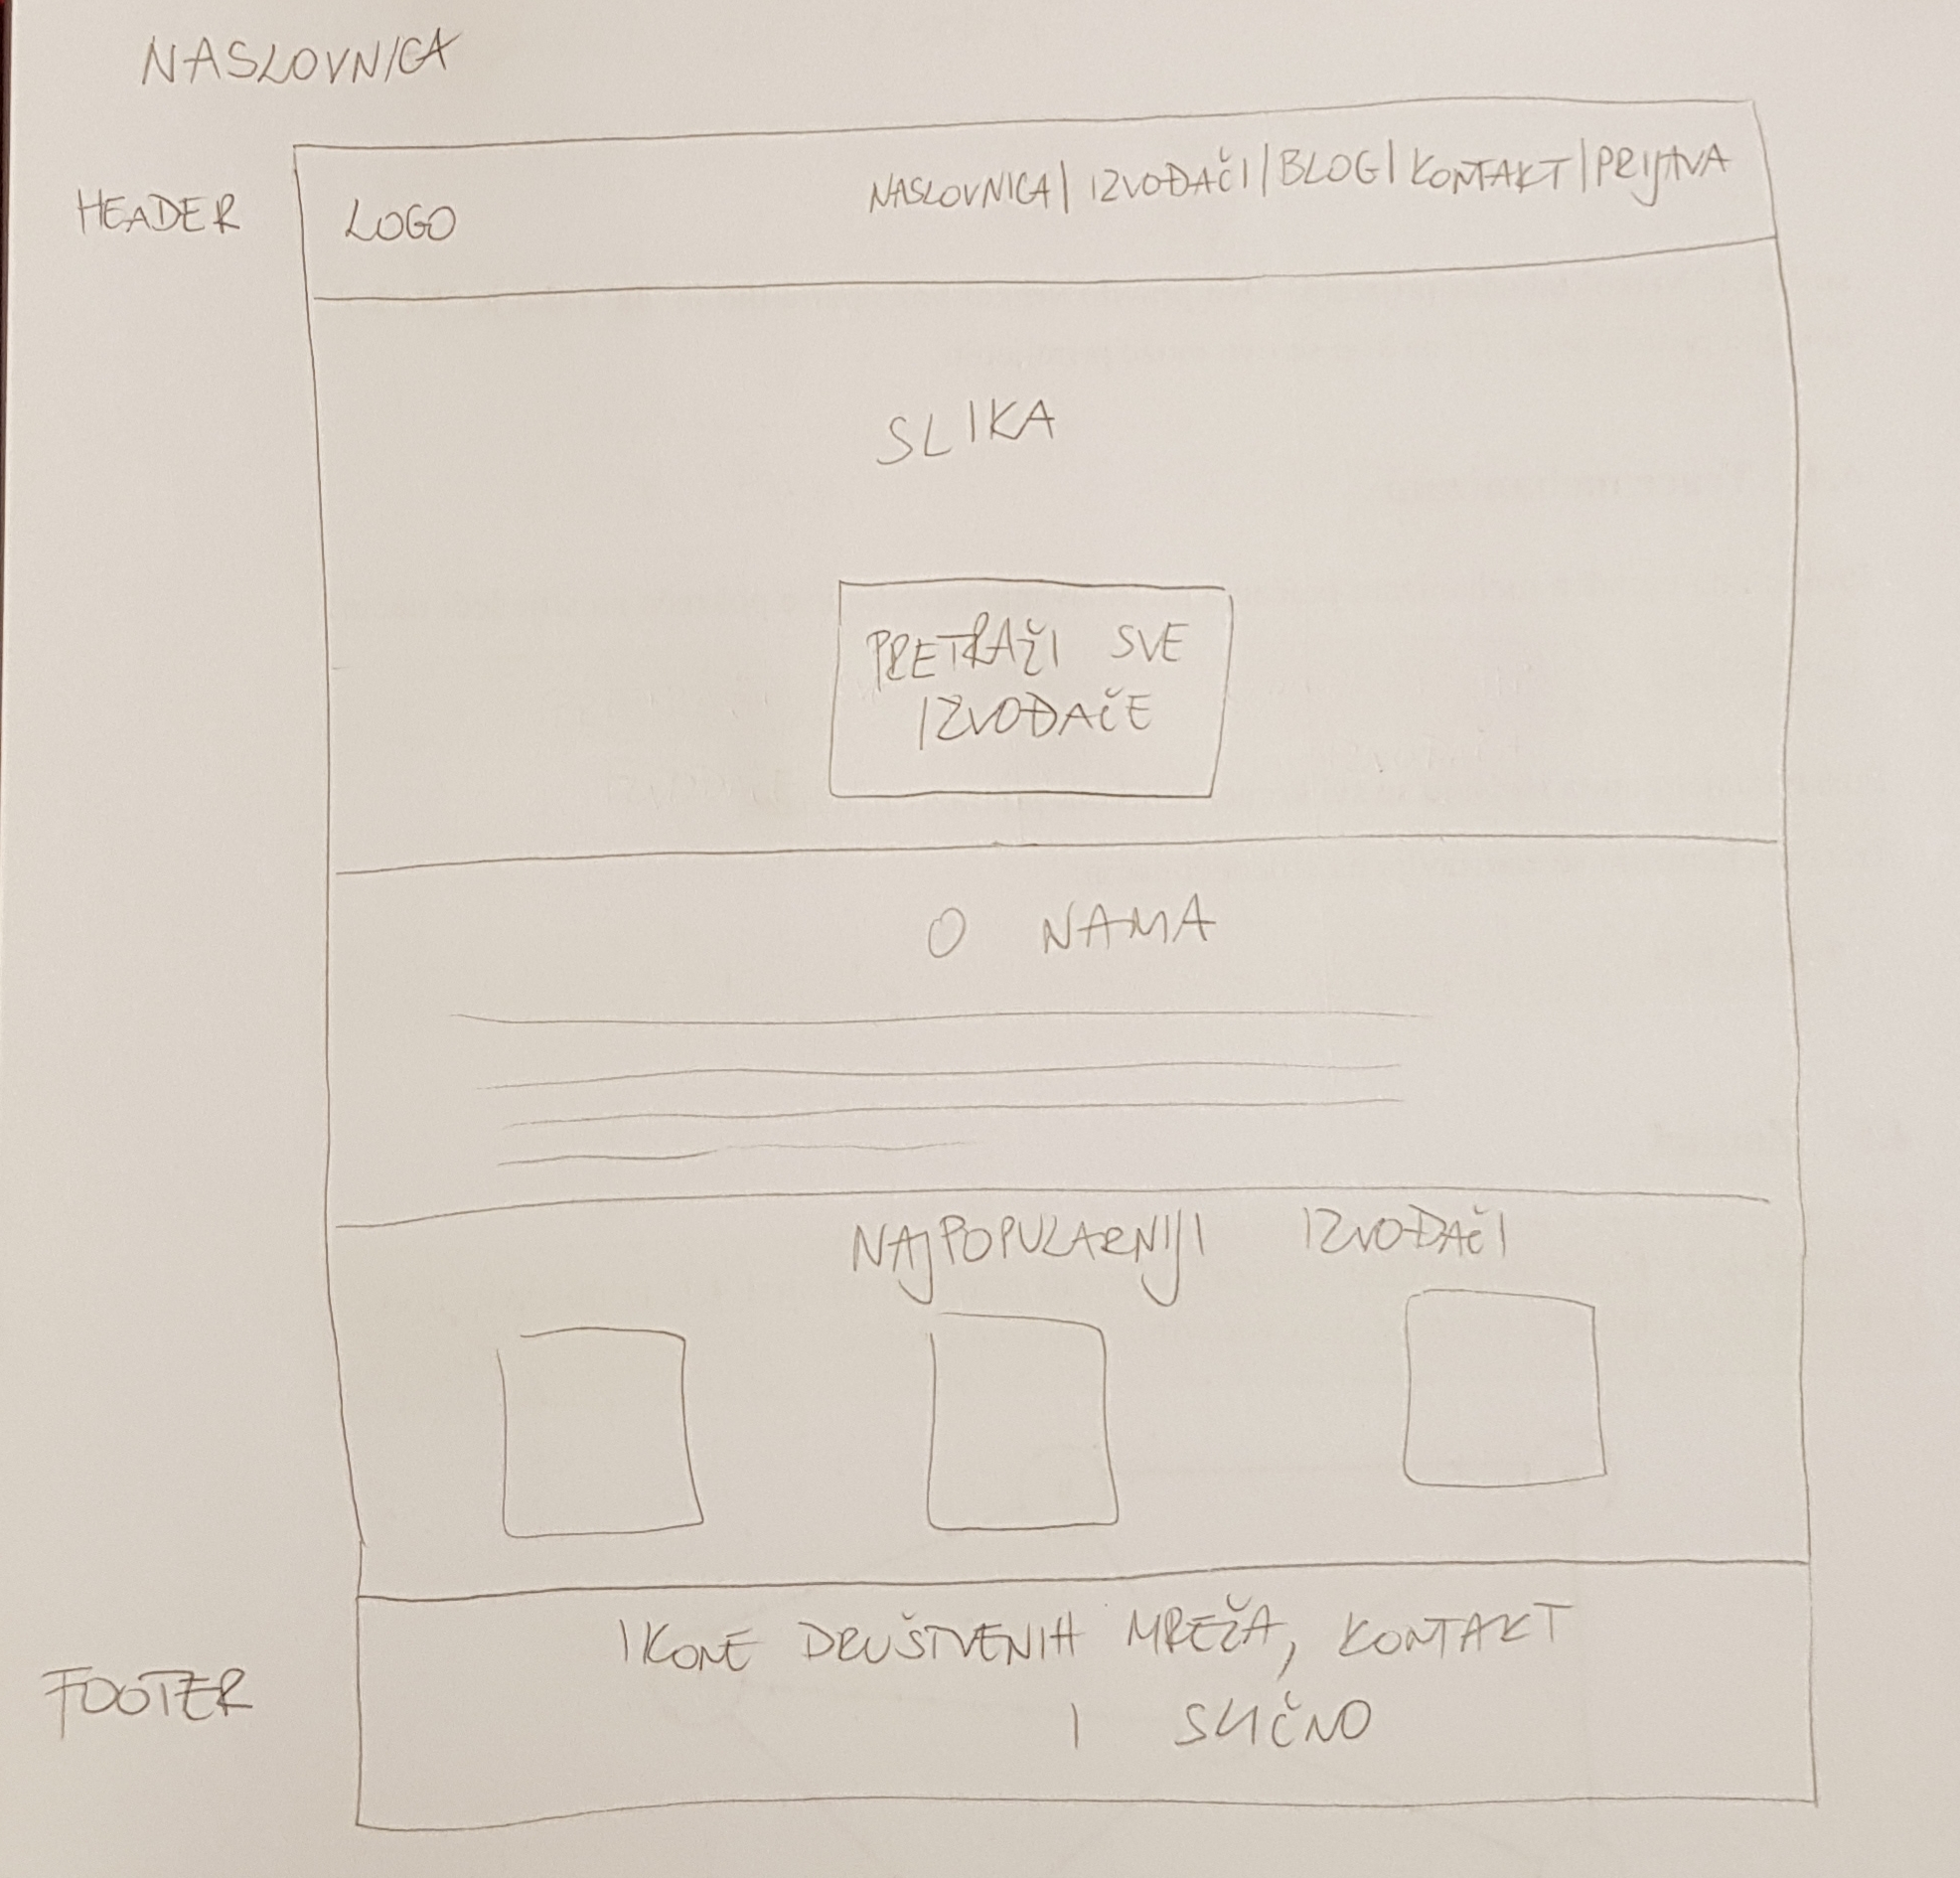 NASLOVNICA
HEADER
LOGO
NASLOVNICA | IZVOĐAČI | BLOG | KONTAKT | PRIJAVA
SLIKA
PRETRAŽI SVE
IZVOĐAČE
O NAMA
NAJPOPULARNIJI IZVOĐAČI
IKONE DRUŠTVENIH MREŽA, KONTAKT
I SLIČNO
FOOTER